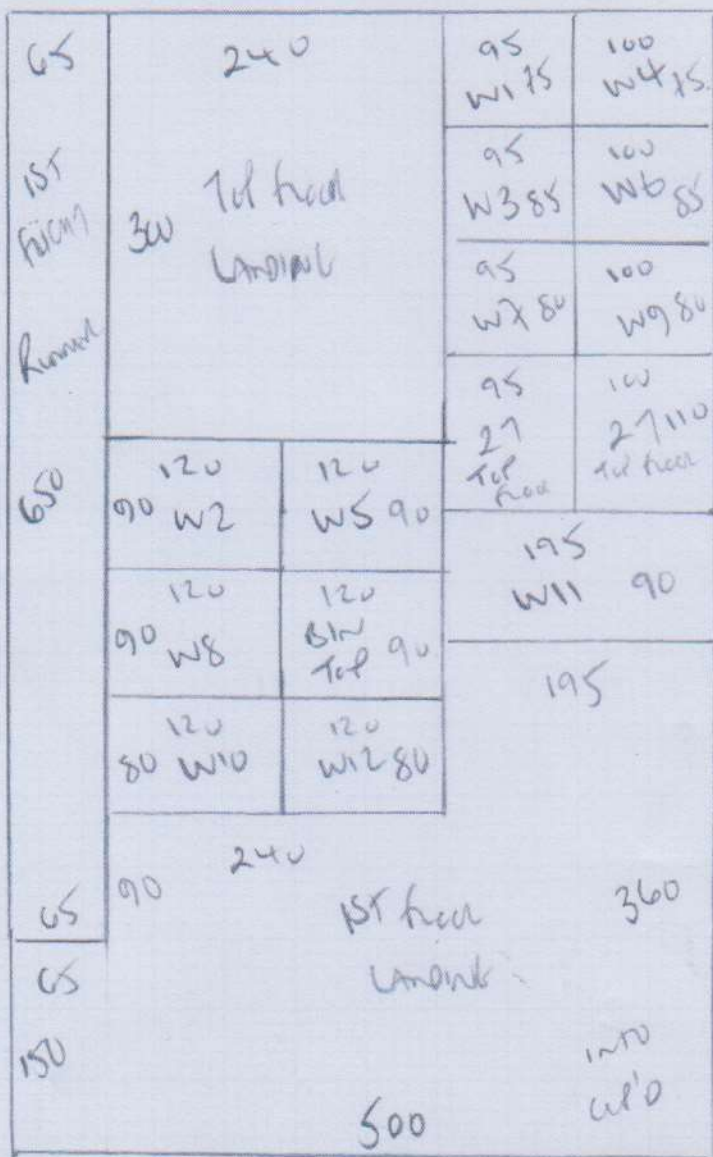 65
1ST
FLIGHT
Runner
650
65
65
150
240
300
Top floor
LANDING
95
W1 75
100
W4 75
95
W3 85
100
W6 85
95
W7 80
100
W9 80
95
27
Top floor
100
27 110
Top floor
120
90 W2
120
W5 90
120
90 W8
120
BIN
Top 90
120
80 W10
120
W12 80
195
W11 90
195
240
90
1ST floor
LANDING
360
INTO
CUP'D
500